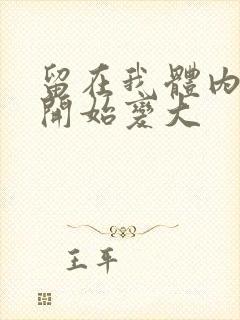 留在我體內
開始變大
王平